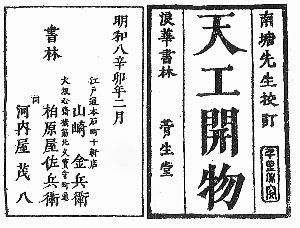 南塘先生校訂
天工開物
浪華書林 菅生堂
明和八辛卯年二月
書林
江戶通本石町十軒店
山﨑金兵衛
大坂心斎橋筋北久宝寺町
柏原屋佐兵衛
同
河內屋茂八